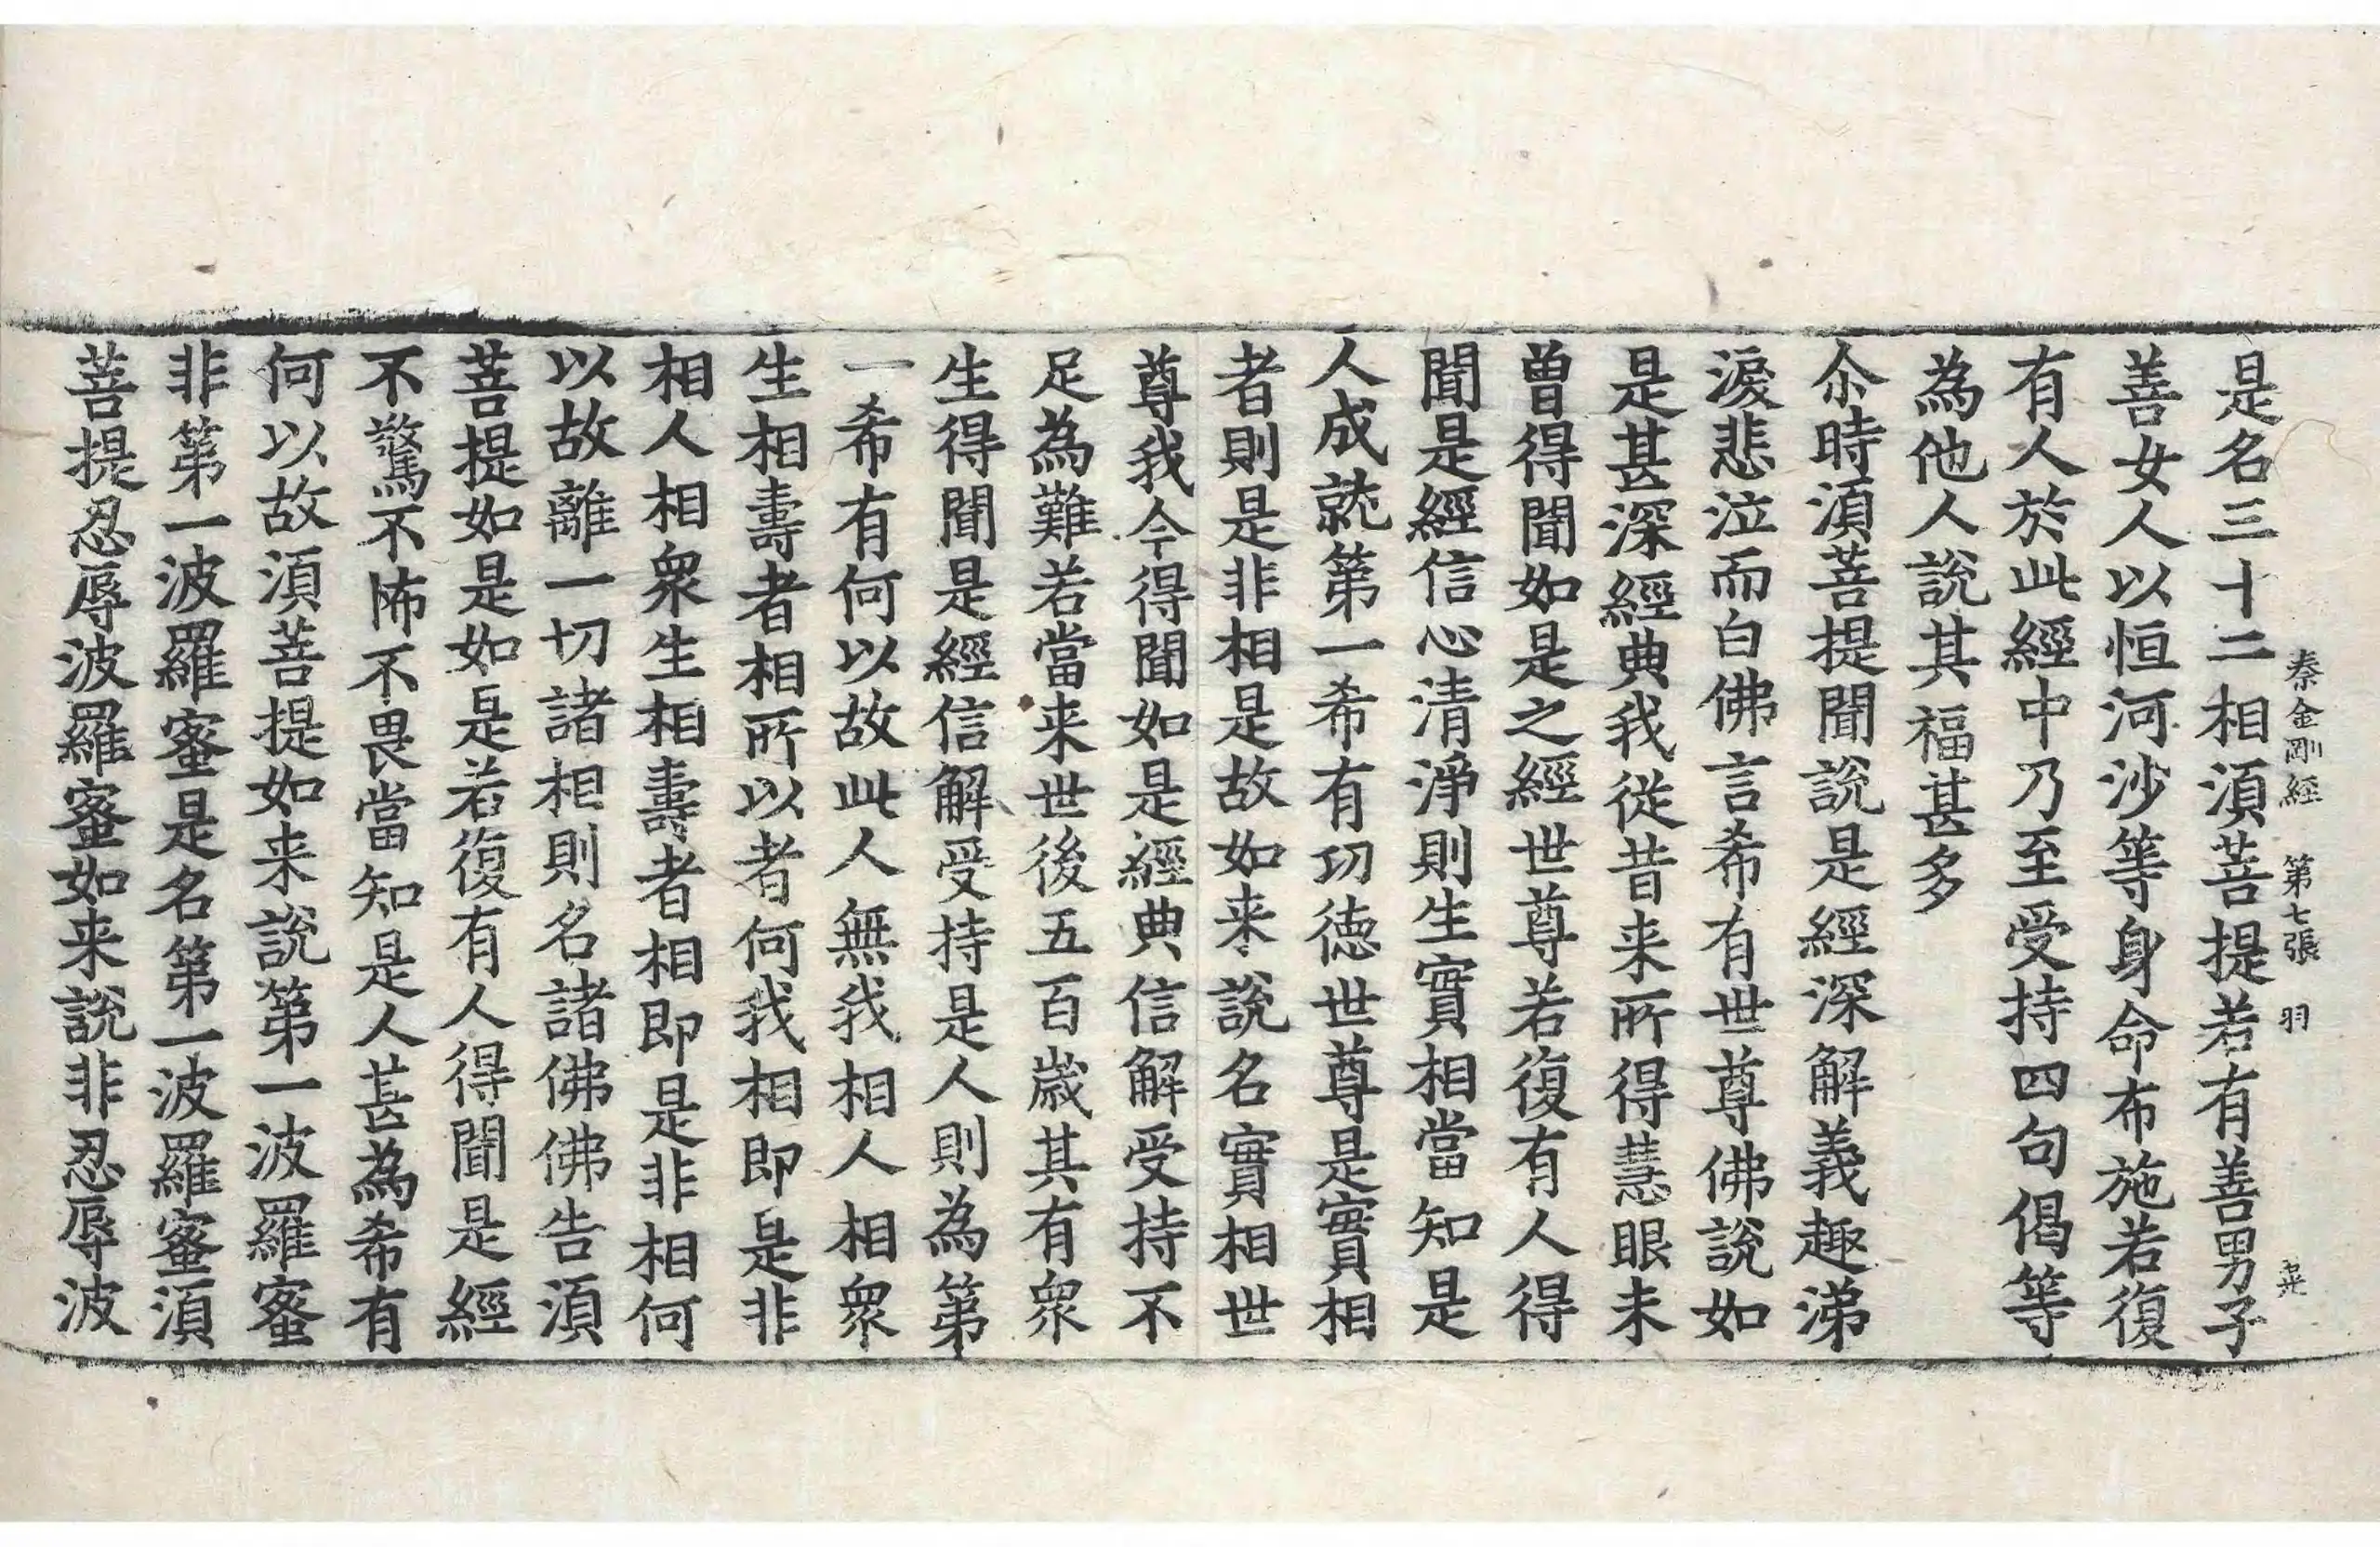 秦金剛經　第七張　羽
是名三十二相湏菩提若有善男子
善女人以恒河沙等身命布施若復
有人於此經中乃至受持四句偈等
為他人說其福甚多
尒時湏菩提聞說是經深解義趣涕
淚悲泣而白佛言希有世尊佛說如
是甚深經典我從昔来所得慧眼未
曽得聞如是之經世尊若復有人得
聞是經信心清淨則生實相當知是
人成就第一希有功徳世尊是實相
者則是非相是故如来說名實相世
尊我今得聞如是經典信解受持不
足為難若當来世後五百歲其有衆
生得聞是經信解受持是人則為第
一希有何以故此人無我相人相衆
生相壽者相所以者何我相即是非
相人相衆生相壽者相即是非相何
以故離一切諸相則名諸佛佛告湏
菩提如是如是若復有人得聞是經
不驚不怖不畏當知是人甚為希有
何以故湏菩提如来說第一波羅蜜
非第一波羅蜜是名第一波羅蜜湏
菩提忍辱波羅蜜如来說非忍辱波